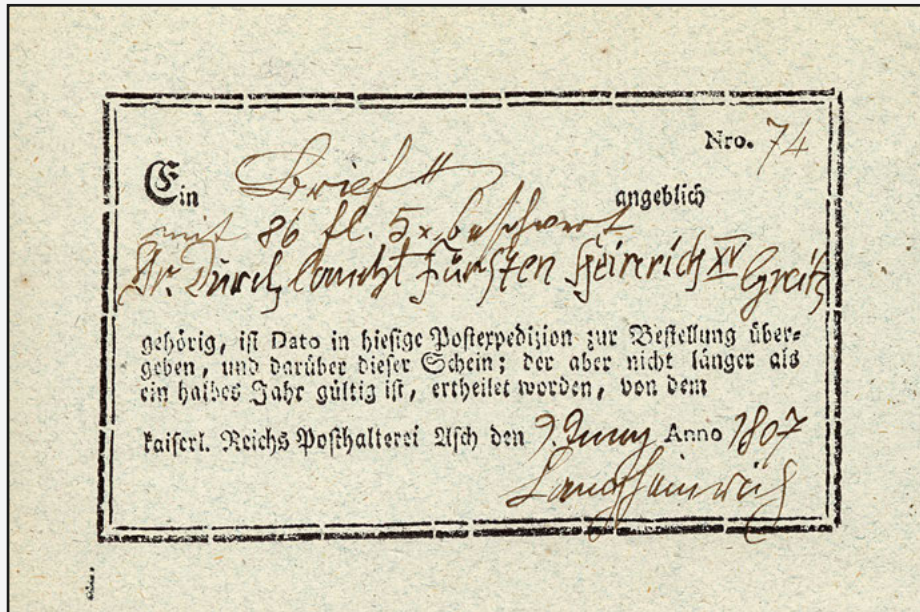 Nro. 74
Ein Brief angeblich
mit 86 fl. 5 x beschwert
Sr. Durchlaucht Fürsten Heinrich XV Greitz
gehörig, ist Dato in hiesige Postexpedizion zur Bestellung über-
geben, und darüber dieser Schein; der aber nicht länger als
ein halbes Jahr gültig ist, ertheilet worden, von dem
kaiserl. Reichs Posthalterei Asch den 9. Juny Anno 1807
Langheinrich